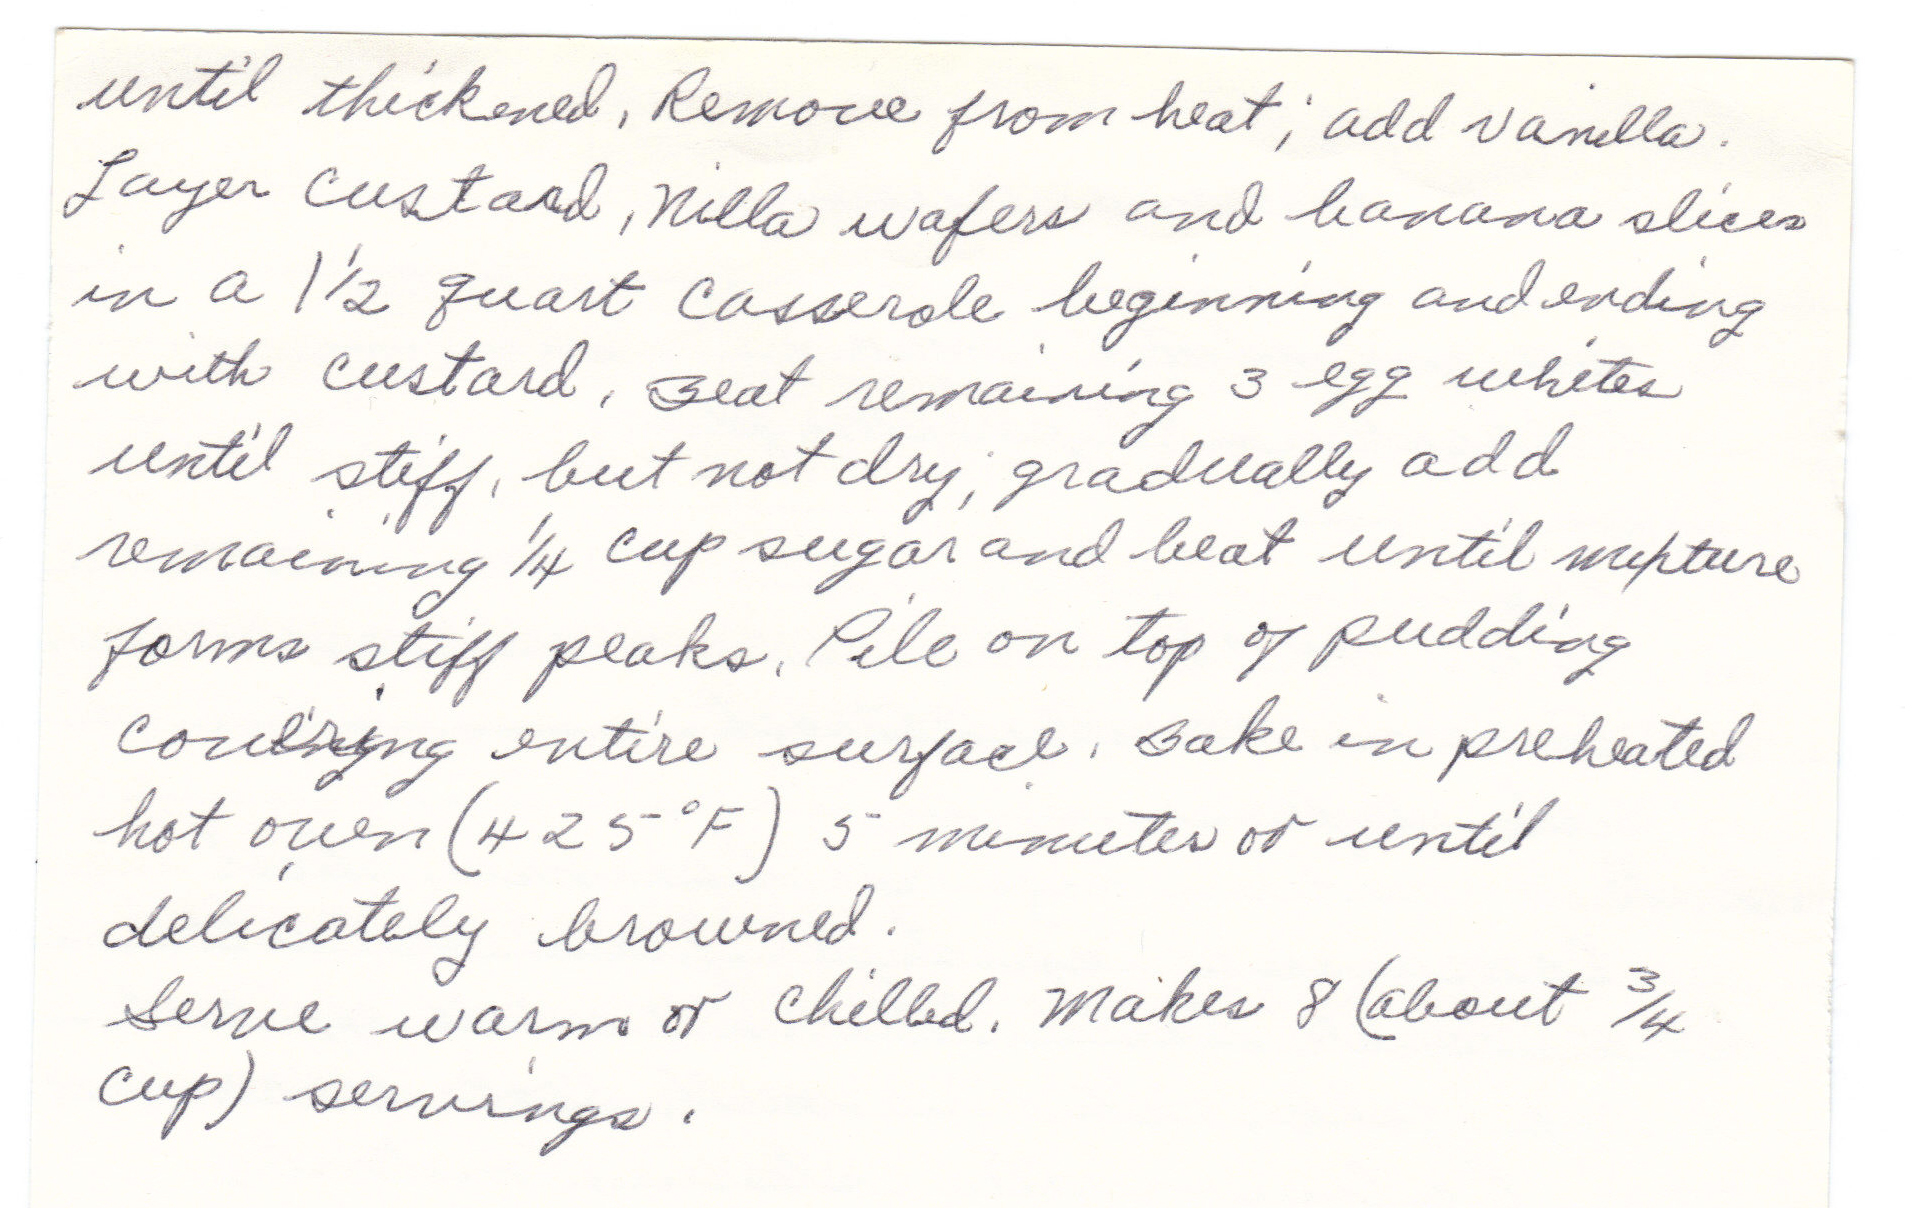 until thickened. Remove from heat; add vanilla.
Layer custard, Nilla wafers and banana slices
in a 1 1/2 quart casserole beginning and ending
with custard. Beat remaining 3 egg whites
until stiff, but not dry; gradually add
remaining 1/4 cup sugar and beat until mixture
forms stiff peaks. Pile on top of pudding
covering entire surface. Bake in preheated
hot oven (425°F) 5 minutes or until
delicately browned.
Serve warm or chilled. Makes 8 (about 3/4
cup) servings.